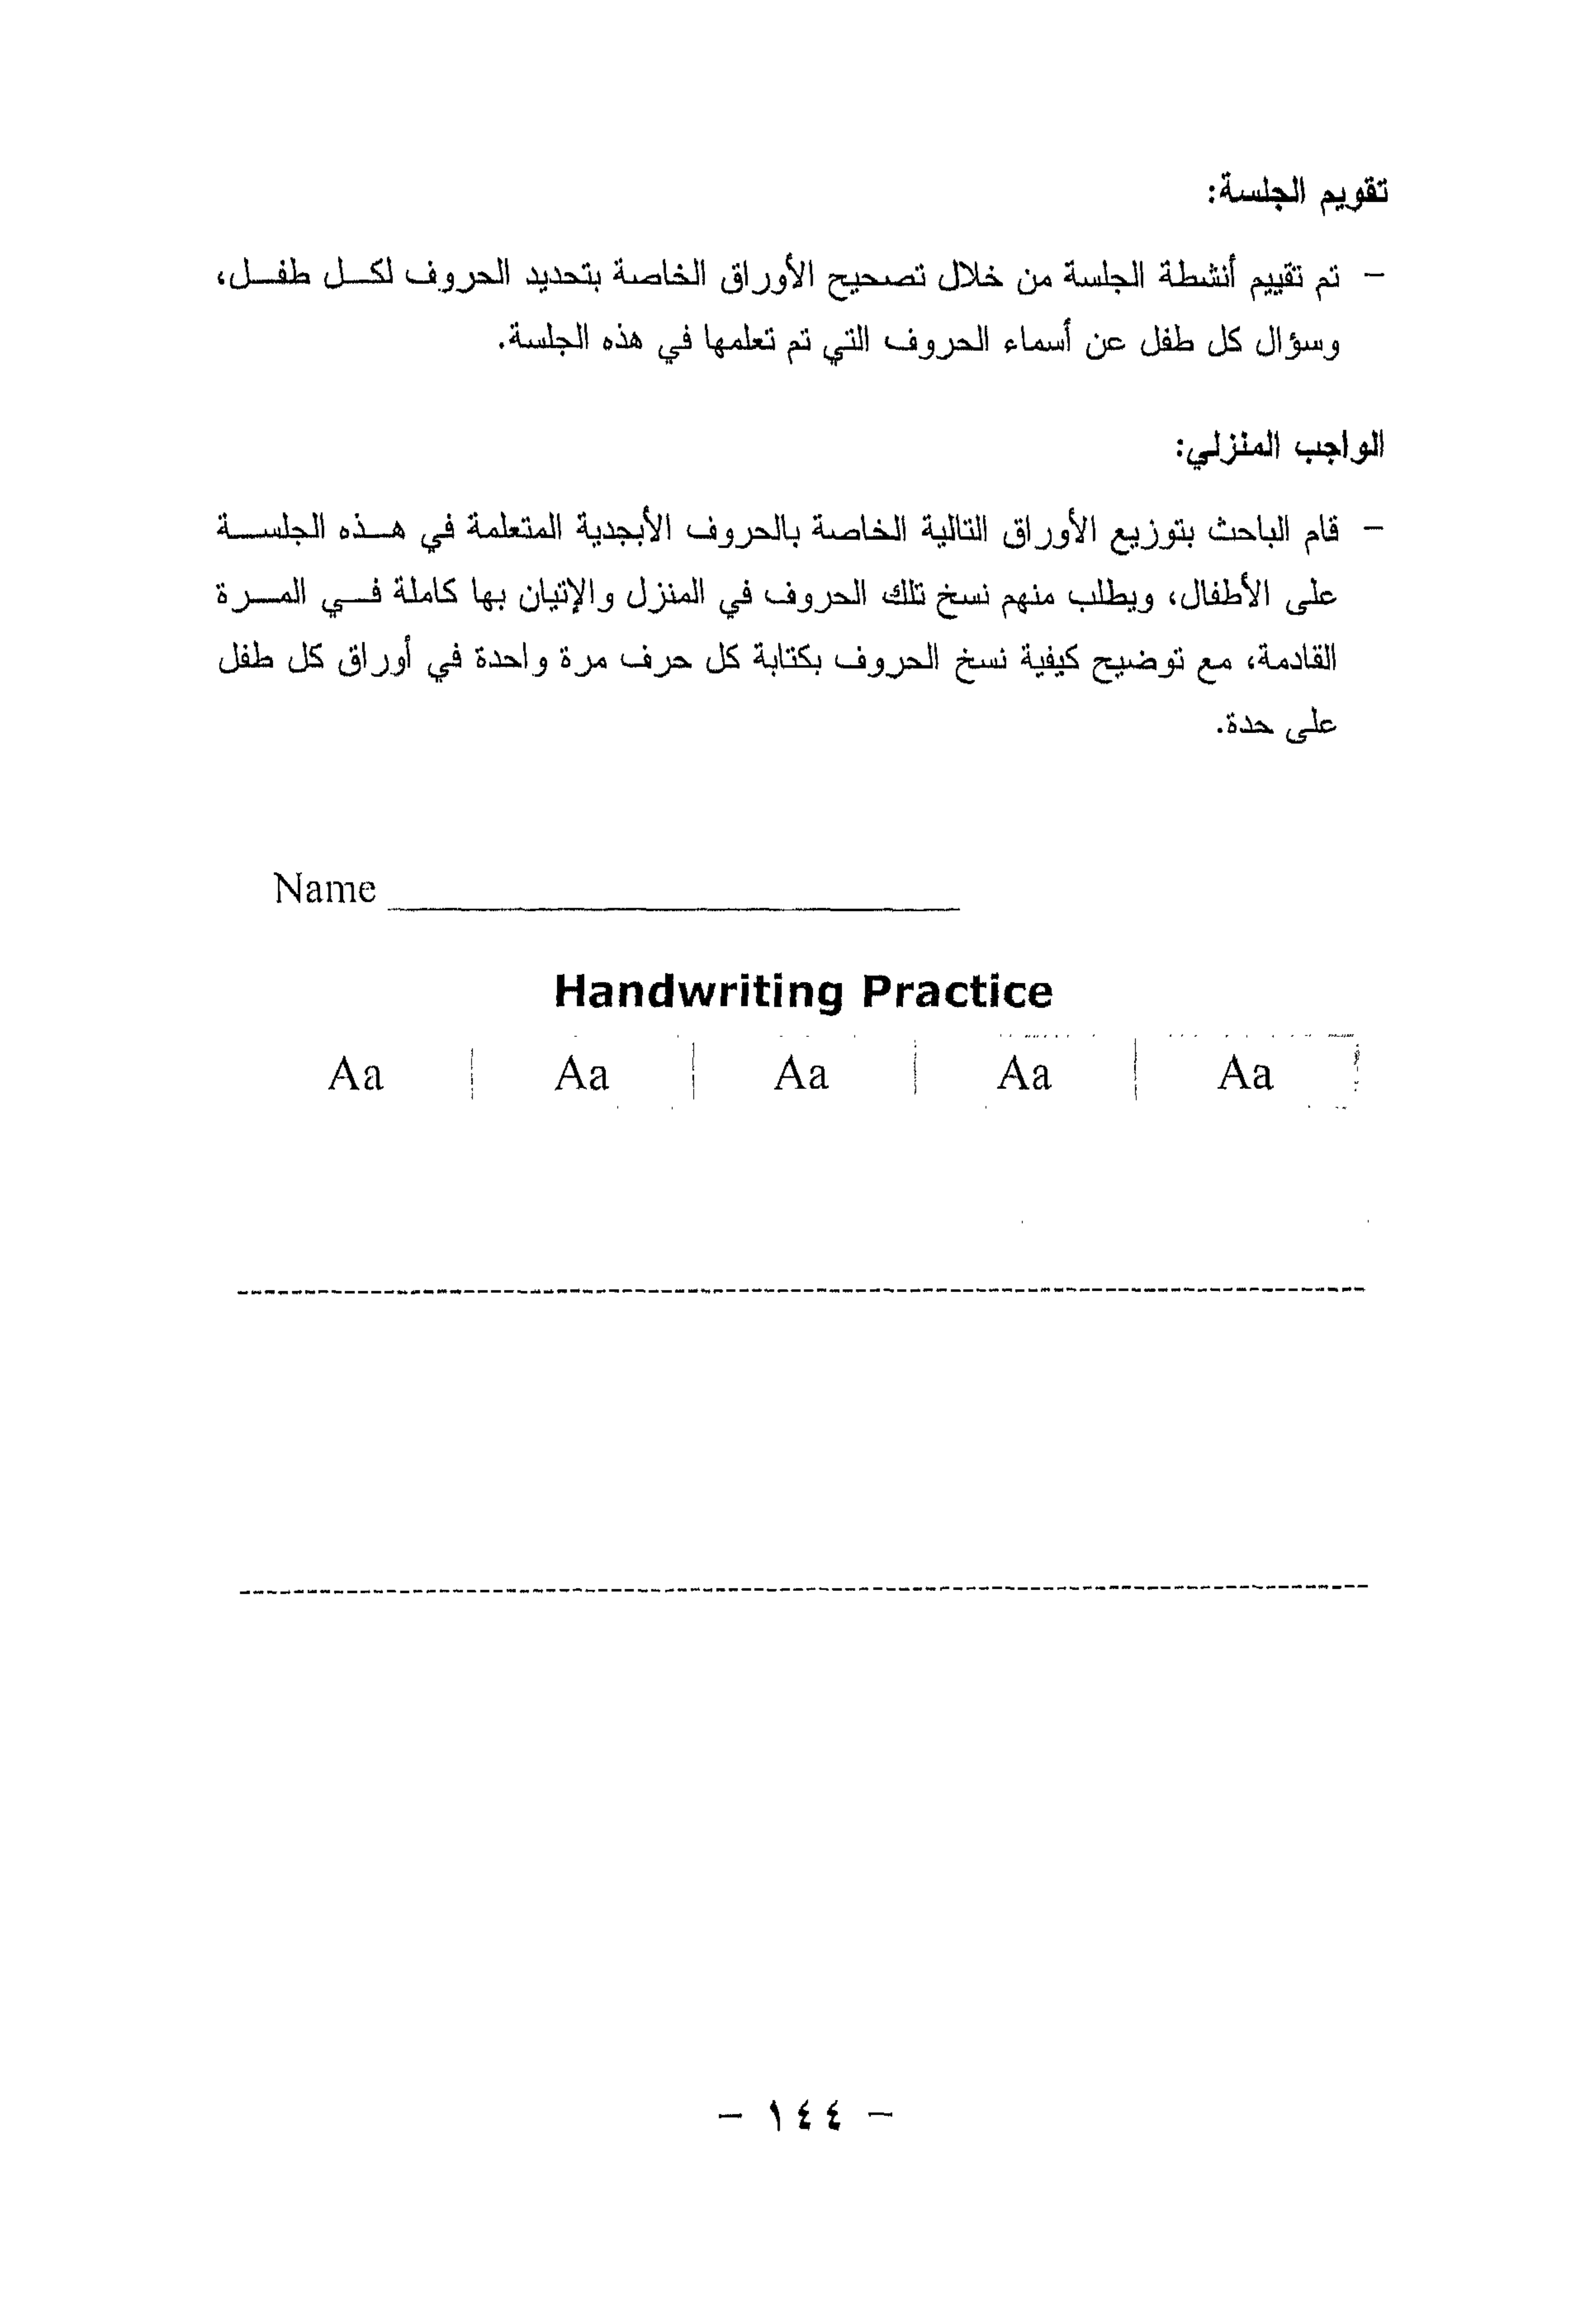 تقويم الجلسة:
– تم تقييم أنشطة الجلسة من خلال تصحيح الأوراق الخاصة بتحديد الحروف لكل طفل،
وسؤال كل طفل عن أسماء الحروف التي تم تعلمها في هذه الجلسة.
الواجب المنزلي:
– قام الباحث بتوزيع الأوراق التالية الخاصة بالحروف الأبجدية المتعلمة في هذه الجلسة
على الأطفال، ويطلب منهم نسخ تلك الحروف في المنزل والإتيان بها كاملة في المرة
القادمة، مع توضيح كيفية نسخ الحروف بكتابة كل حرف مرة واحدة في أوراق كل طفل
على حدة.
Name ____________________
Handwriting Practice
Aa Aa Aa Aa Aa
– ١٤٤ –